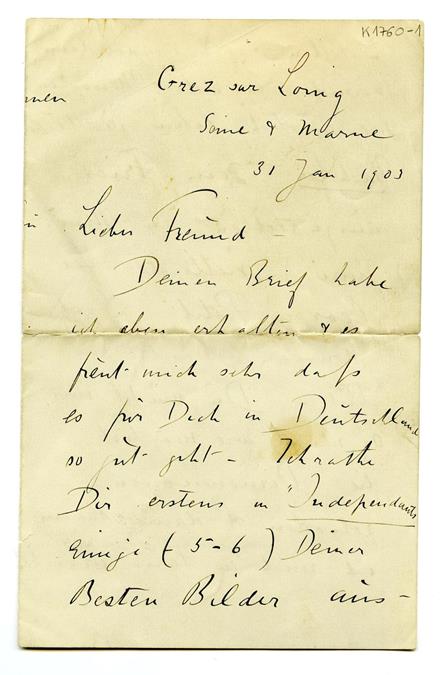 K1760-1
Grez sur Loing
Seine & Marne
31 Jan 1903
Lieber Freund
Deinen Brief habe
ich eben erhalten & es
freut mich sehr dass
es für Dich in Deutschland
so gut geht – Ich rathe
Dir erstens in "Independants
Einige (5–6) Deiner
Besten Bilder aus-